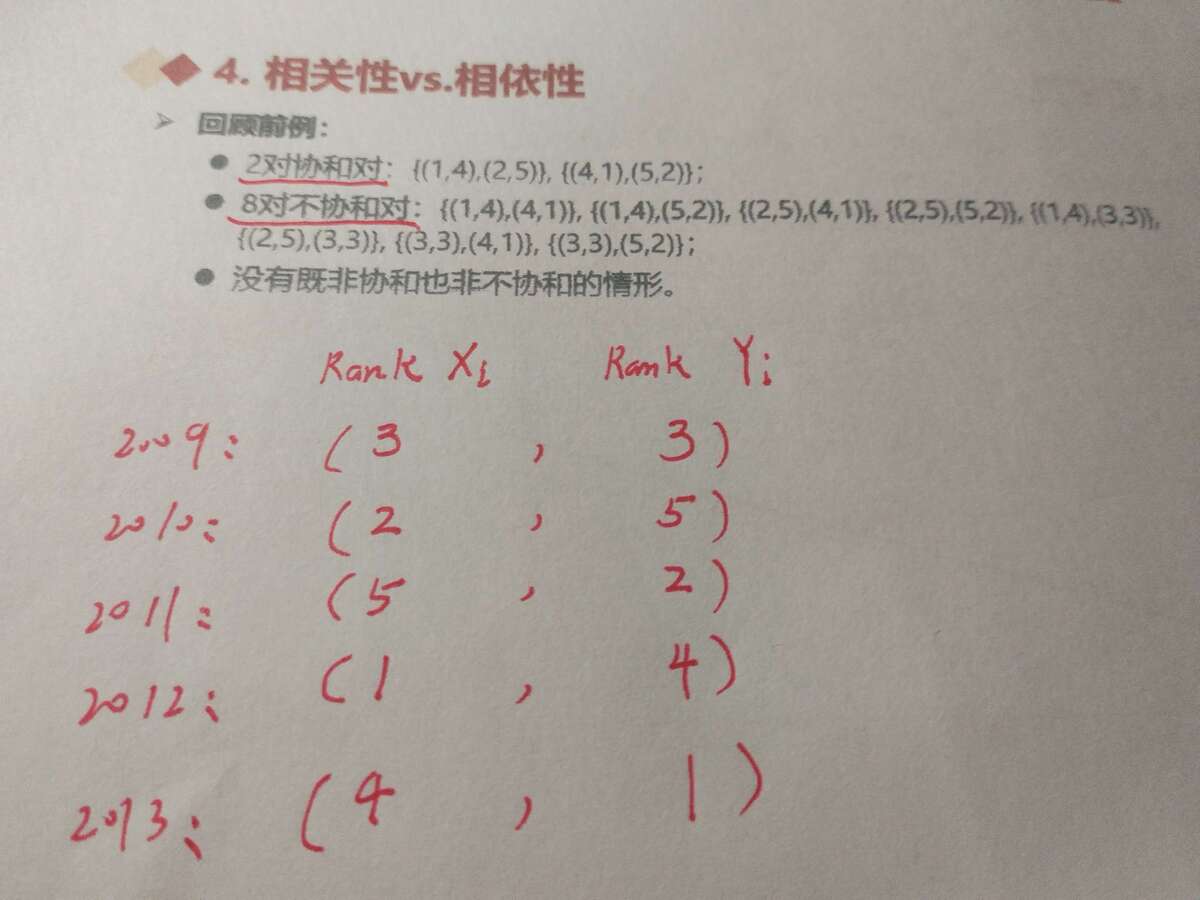 4. 相关性vs.相依性
回顾前例：
2对协和对：{(1,4),(2,5)}, {(4,1),(5,2)}；
8对不协和对：{(1,4),(4,1)}, {(1,4),(5,2)}, {(2,5),(4,1)}, {(2,5),(5,2)}, {(1,4),(3,3)},
{(2,5),(3,3)}, {(3,3),(4,1)}, {(3,3),(5,2)}；
没有既非协和也非不协和的情形。
Rank Xi Rank Yi
2009: (3 , 3)
2010: (2 , 5)
2011: (5 , 2)
2012: (1 , 4)
2013: (4 , 1)